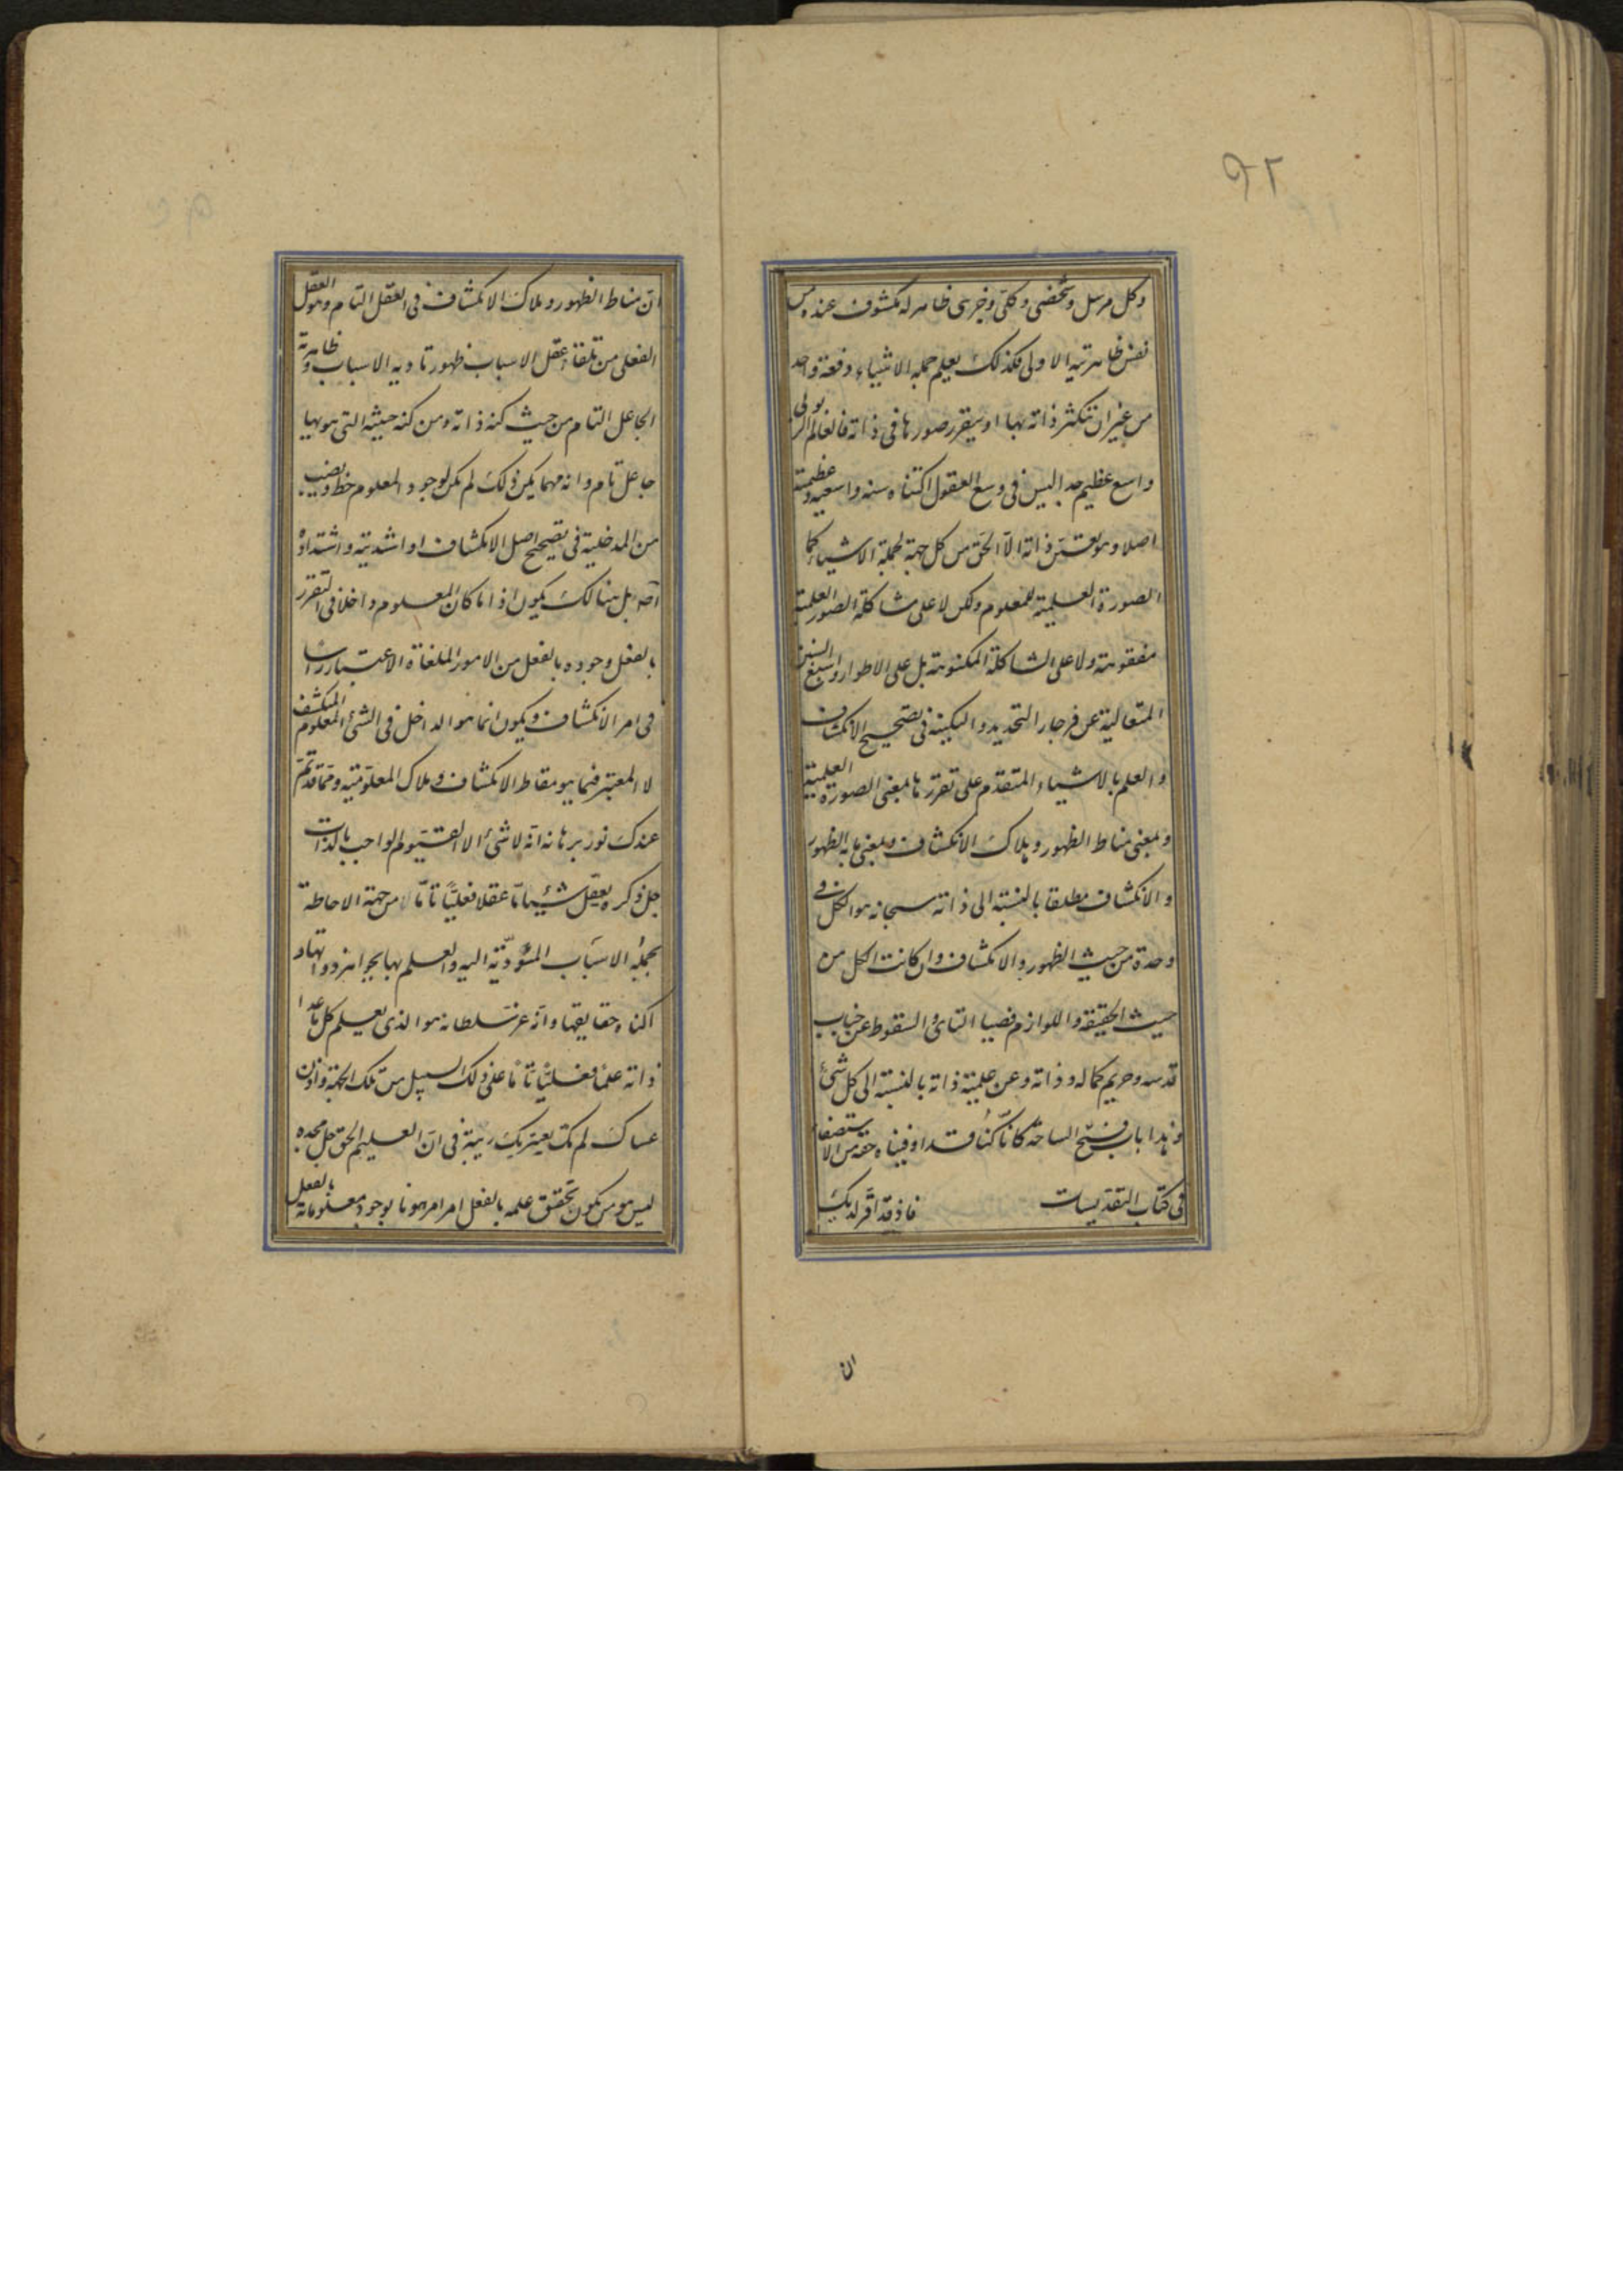 ٩٢
وكل مرسل وشخصى وكلى وجزئى ظاهر له مكشوف عنده من
نفس ظاهريته الاولى فكذلك يعلم جملة الاشياء دفعة واحدة
من غير ان تتكثر ذاته بها او يتقرر صورها فى ذاته فالعالم الربوبى
واسع عظيم جدا ليس فى وسع العقول اكتناه سنه واسعيه وعظمته
اصلا وهو بنفس ذاته الاّ الحق من كل جهة لجملة الاشياء كما
الصورة العلمية للمعلوم ولكن لا على مشاكلة الصور العلمية
مفقوهة ولا على الشاكلة المكنوهة بل على الاطوار واسبغ السنن
المتعالية عن فرجار التحديد والتكييف فى تصحيح الانكشاف
والعلم بالاشياء المتقدم على تقررها بمعنى الصورة العلمية
وبمعنى مناط الظهور وملاك الانكشاف وبمعنى ما به الظهور
والانكشاف مطلقا بالنسبة الى ذاته سبحانه هو الكل فى
وحدة من حيث الظهور والانكشاف وان كانت الكل من
حيث الحقيقة واللوازم قصيا التنائى والسقوط عن جناب
قدسه وحريم كماله وذاته وعن علمية ذاته بالنسبة الى كل شئ
وهذا باب فسيح الساحة كانّا كنّا قد اوفيناه حقه من الاستصفاء
فى كتاب التقديسات فاذ قد اقر لديك
ان
انّ مناط الظهور وملاك الانكشاف فى العقل التام وهو العقل
الفعلى من تلقاء عقل الاسباب ظهور تادية الاسباب وظاهرية
الجاعل التام من حيث كنه ذاته ومن كنه حيثيته التى هو بها
جاعل تام وانه مهما يكن ذلك لم يكن لوجود المعلوم حظ ونصيب
من المدخلية فى تصحيح اصل الانكشاف او اشديته واشتداده
اصلا بل هنالك يكون اذا ما كان المعلوم داخلا فى التقرر
بالفعل وجوده بالفعل من الامور الملغاة الاعتبار راسا
فى امر الانكشاف ويكون انما هو الداخل فى الشئ المعلوم المنكشف
لا المعتبر فيما هو مقاط الانكشاف وملاك المعلوميّة وممّا قد تمّ
عندك نور برهانه انه لا شئ الا القيوم الواجب بالذات
جل ذكره يعقل شيئا ما عقلا فعليّا تامّا لا من جهة الاحاطة
بجملة الاسباب المتؤدّية اليه والعلم بها بجواهر ذواتها و
اكناه حقايقها وانّه عز سلطانه هو الذى يعلم كل ما عدا
ذاته علمًا فعليًّا تامًّا على ذلك السبيل من تلك الجهة واذن
عساك لم تك يعتريك ريبة فى انّ العليم الحق جل مجده
ليس هو من يكون تحقق علمه بالفعل امرا مرهونا بوجود معلوماته بالفعل